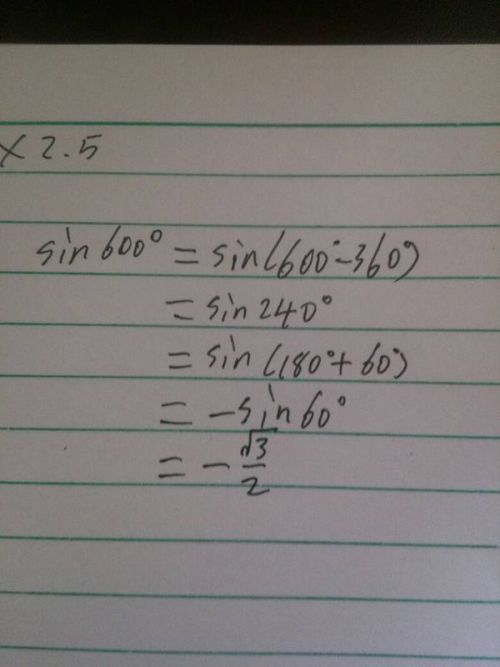 x 2.5
sin 600° = sin(600°-360°)
= sin 240°
= sin (180°+ 60°)
= -sin 60°
= -√3/2